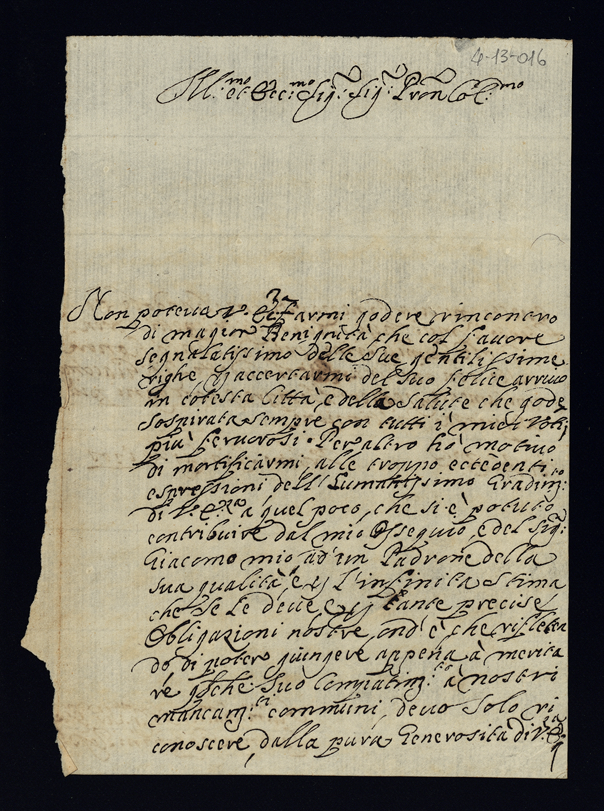 4-13-016
Ill.mo et Ecc.mo Sig.r Sig.r Pron Col.mo
Non poteua V. Ecc.za farmi godere rincontro
di magior Benignità che col fauore
segnalatissimo delle sue gentilissime
righe p accertarmi del suo felice arriuo
in cotesta Città, e della salute che gode
sospirata sempre con tutti i miei Voti
più feruorosi. Per altro hò motiuo
di mortificarmi alle troppo eccedenti
espressioni dell'Humanissimo Gradim.to
di V. Ecc.za a quel poco, che si è potuto
contribuire dal mio Ossequio, e del Sig.r
Giacomo mio ad un Padrone della
sua qualità, e p l'infinita stima
che se le deue, e p tante precise
Obligazioni nostre, ond'è che rifletten
do di poter giungere appena à merita
re qlche suo Compatim.to à nostri
mancam.ti communi, deuo solo ri
conoscere dalla pura Generosità di V. Ecc.za